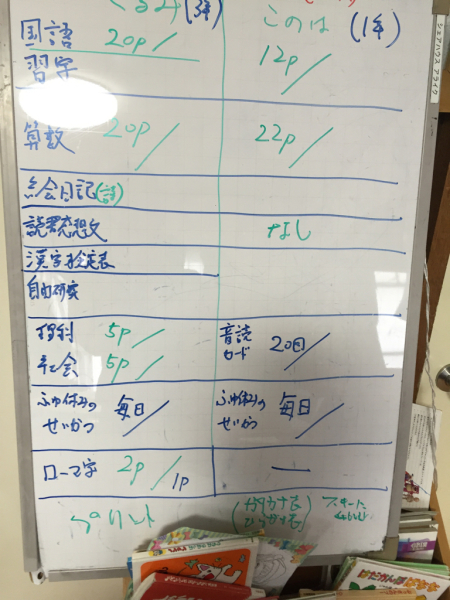 くるみ (3年) このは (1年)
国語 20p/ 12p/
習字
算数 20p/ 22p/
絵日記(詩)
読書感想文 なし
漢字検定表
自由研究
理科 5p/ 音読カード 20回/
社会 5p/
ふゆ休みのせいかつ 毎日/ ふゆ休みのせいかつ 毎日/
ローマ字 2p/1p ー
プリント (カタカナ表 ひらがな表)
はだかんぼ